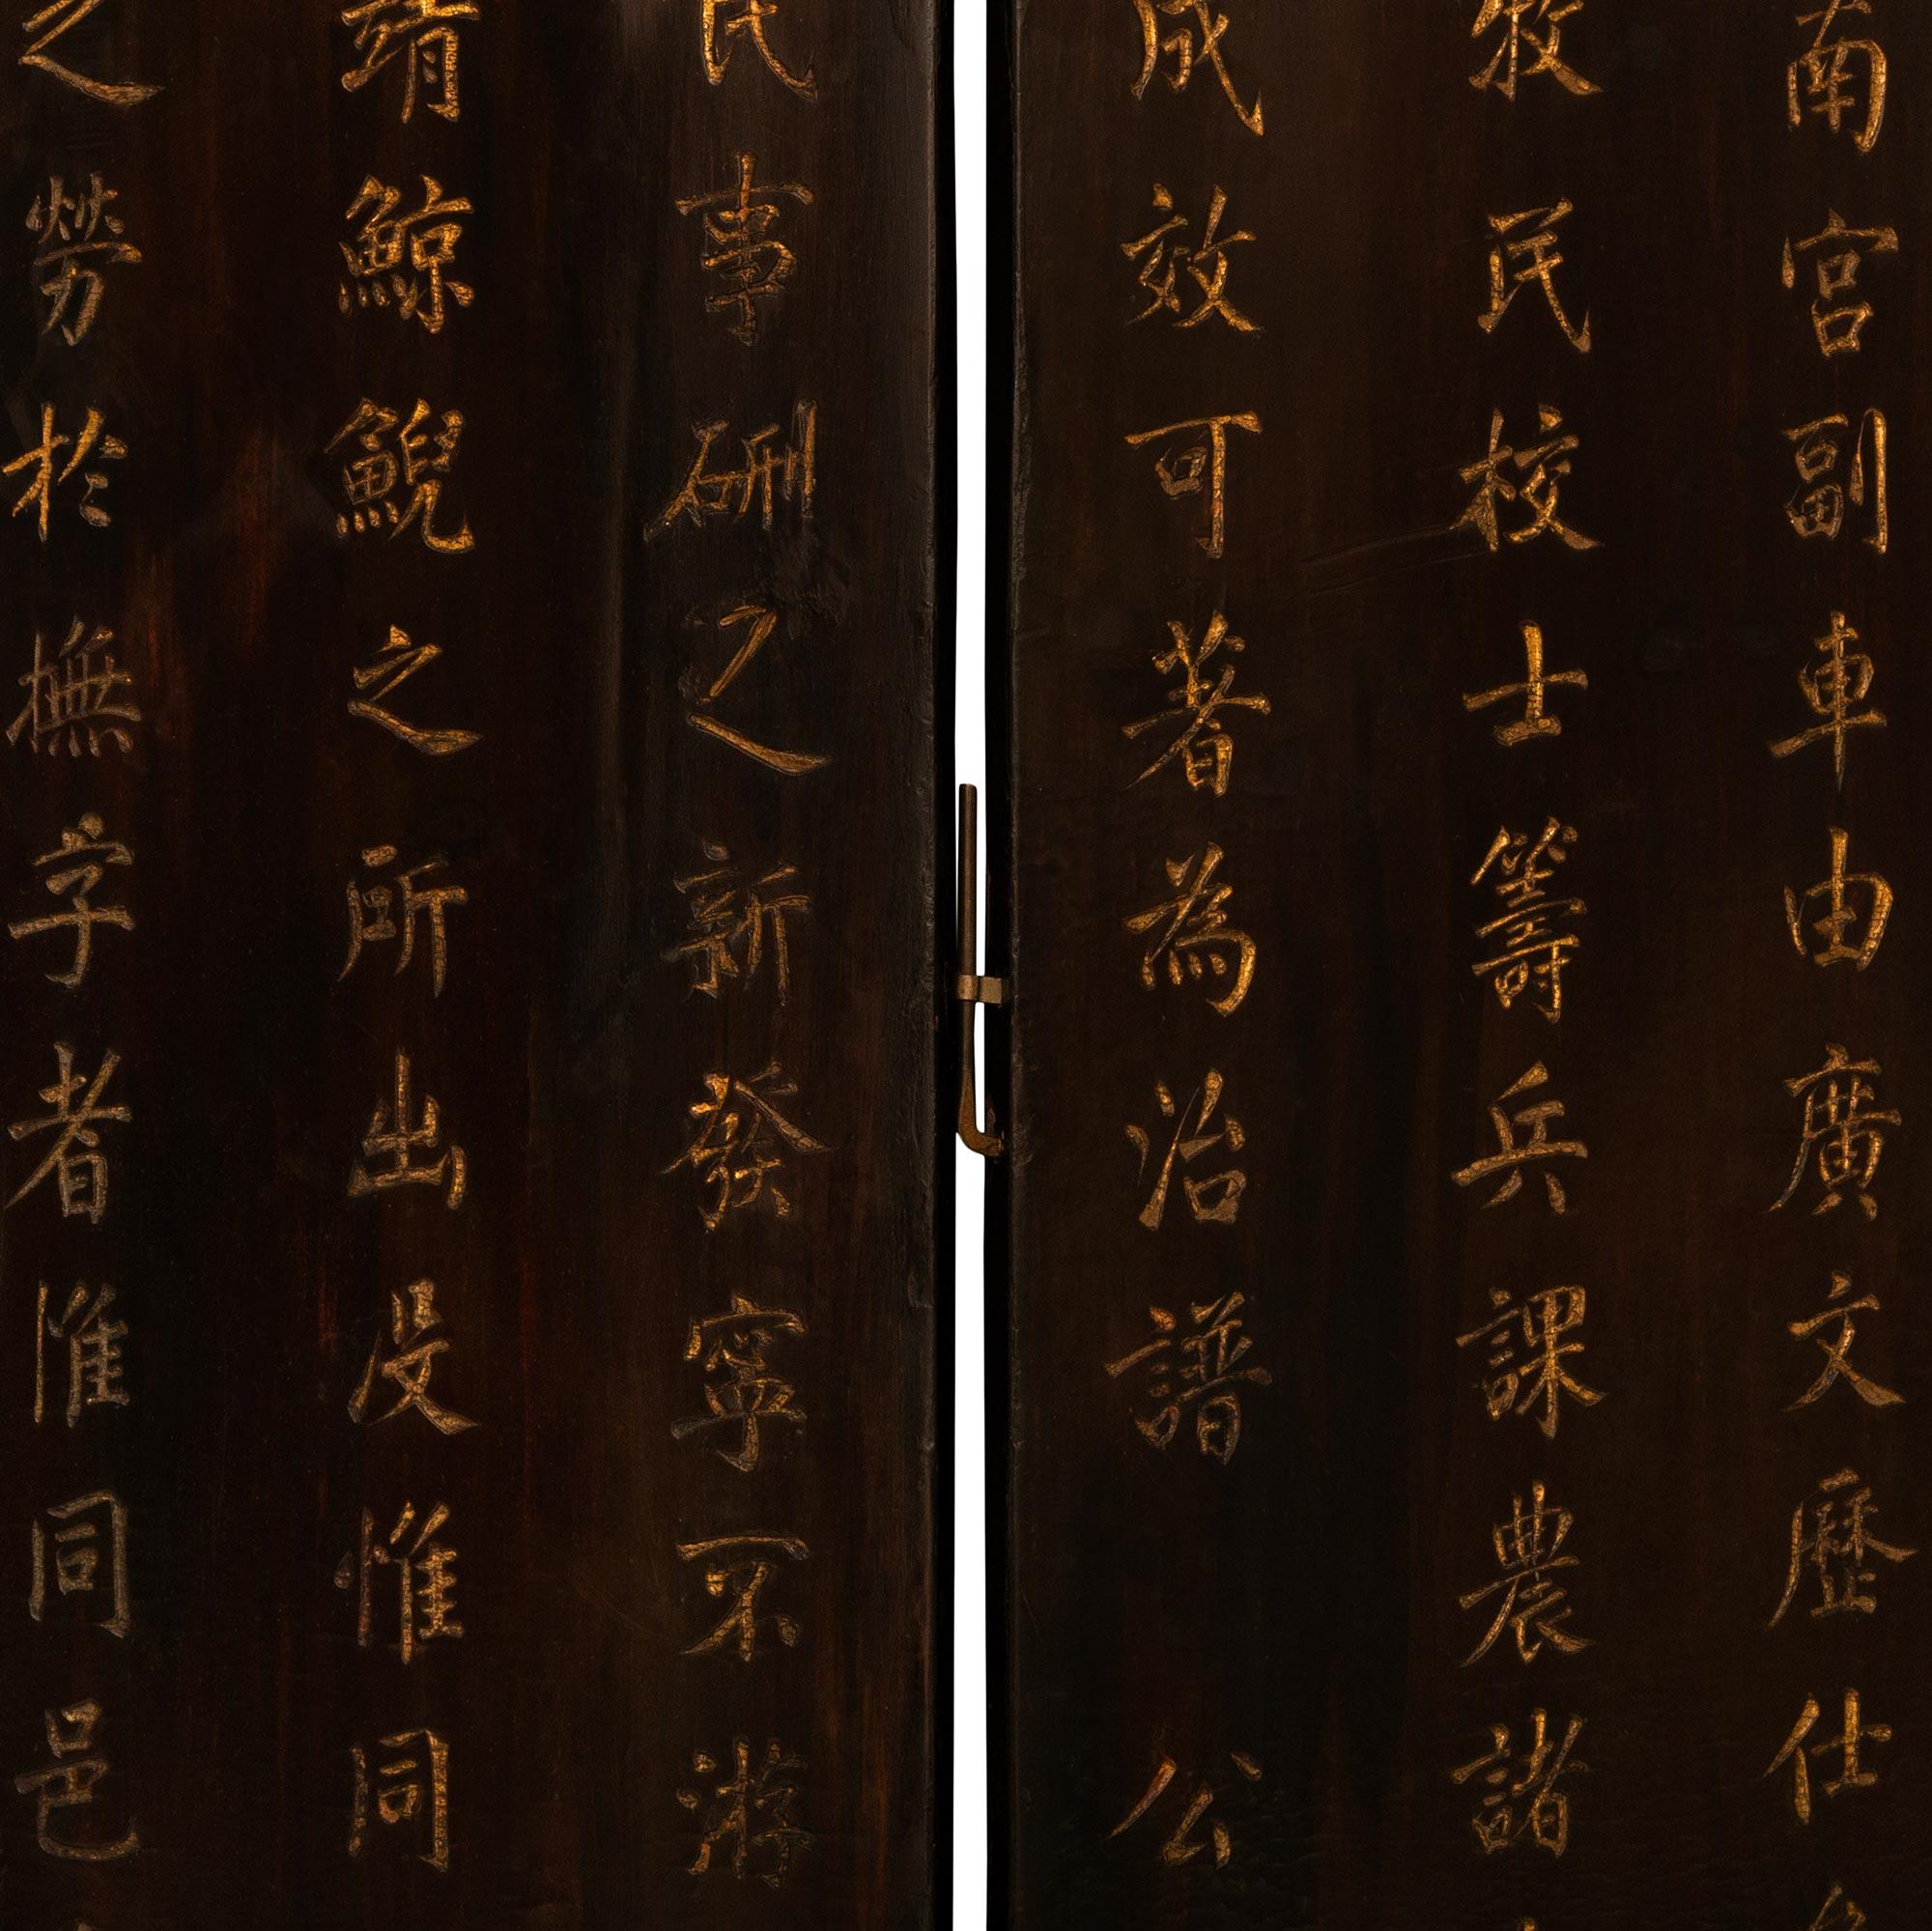 南宮副車由廣文歷仕
牧民校士籌兵課農諸
成效可著為治譜　公
民事硎之新發寧不游
靖鯨鯢之所出没惟同
之勞於撫字者惟同邑